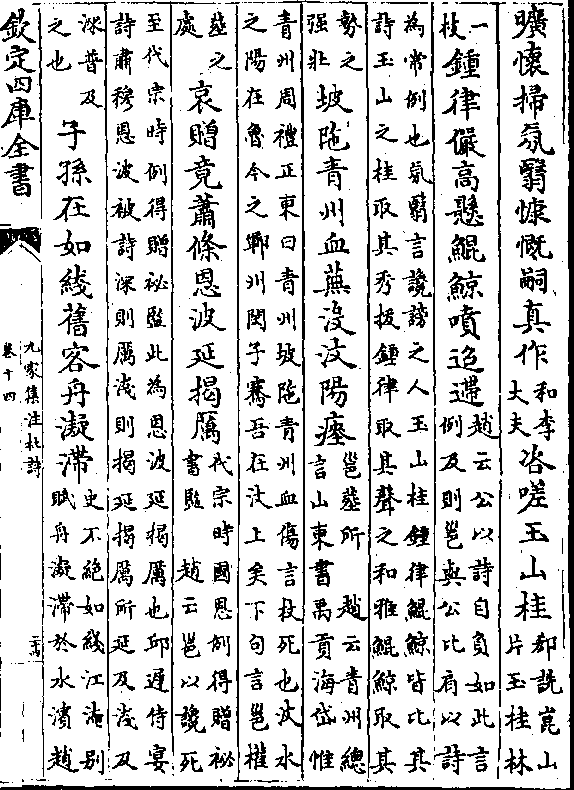 曠懷掃氛翳慷慨嗣真作和李大夫咨嗟玉山桂郤詵崑山片玉桂林
一枝鍾律儼高懸鯤鯨噴迢遰趙云公以詩自負如此言例及則邕與公比肩以詩
為常例也氛翳言讒謗之人玉山桂鍾律鯤鯨皆比其詩玉山之桂取其秀拔鍾律取其聲之和雅鯤鯨取其
勢之强壯坡陁青州血蕪没汶陽瘞邕葬所言山東書趙云青州總禹貢海岱惟
青州周禮正東曰青州坡陁青州血傷言杖死也汶水之陽在魯今之鄆州閔子騫吾在汶上矣下句言邕權
葬之處哀贈竟蕭條恩波延揭厲代宗時國恩例得贈祕書監趙云邕以讒死
至代宗時例得贈祕監此為恩波延揭厲也邱遲侍宴詩肅穆恩波被詩深則厲淺則揭延揭厲所延及淺及
深普及之也子孫在如綫舊客舟凝滯史不絶如綫江淹别賦舟凝滯於水濱趙
欽定四庫全書
九家集注杜詩
卷十四